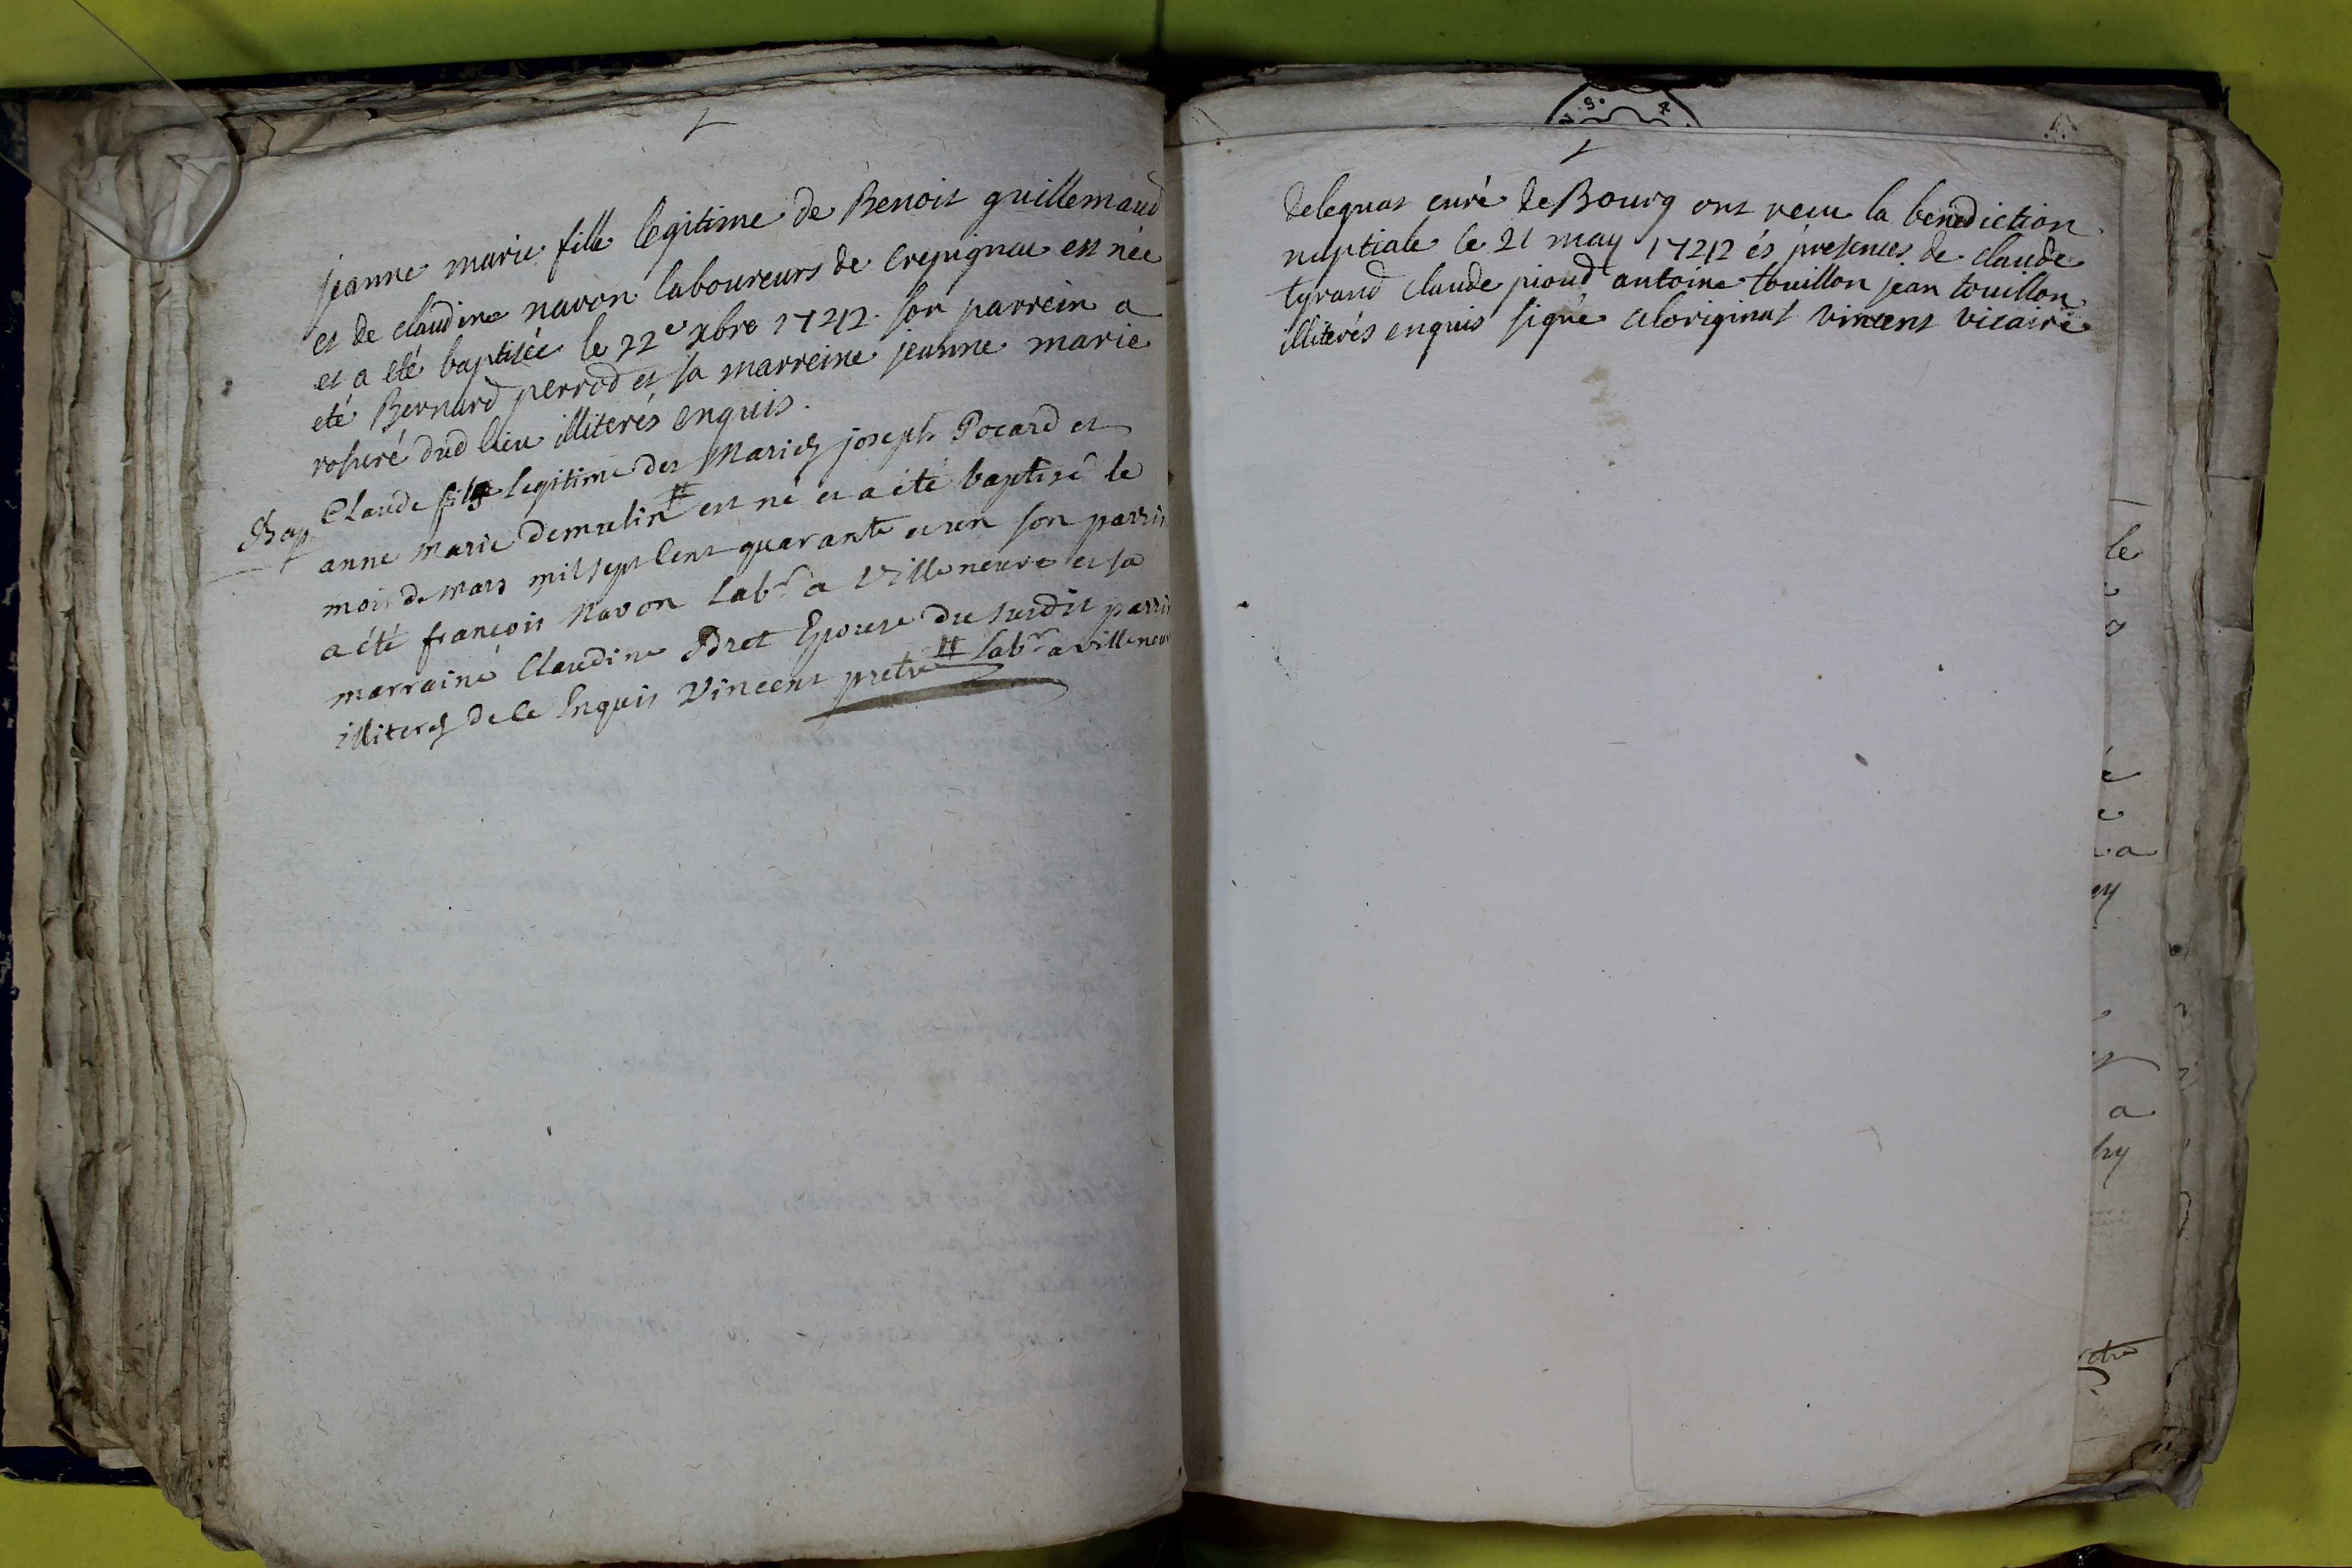 jeanne marie fille legitime de Benoit guillemaud
et de claudine navon laboureurs de Crepignat est née
et a eté baptisée le 22e xbre 1742. son parrein a
eté Bernard perrod et sa marreine jeanne marie
rosuré dud lieu illiterés enquis.
Bap Claude fils legitime des Mariés joseph Pocard et
anne marie demulin # est né et a été baptisé le
mois de mars mil sept cent quarante et un son parrin
a été françois Navon labr à Villeneuve et sa
marraine Claudine Bret Epouse du susdit parrin
illiterés de ce Enquis Vincent pretre # labr a villeneuve
delequat curé de Bourg ont reçu la benediction
nuptiale le 21 may 1742 és presences de claude
tyrand claude pioud antoine touillon jean touillon
illiterés enquis signé a loriginal vincent vicaire
le
a
ey
a
hy